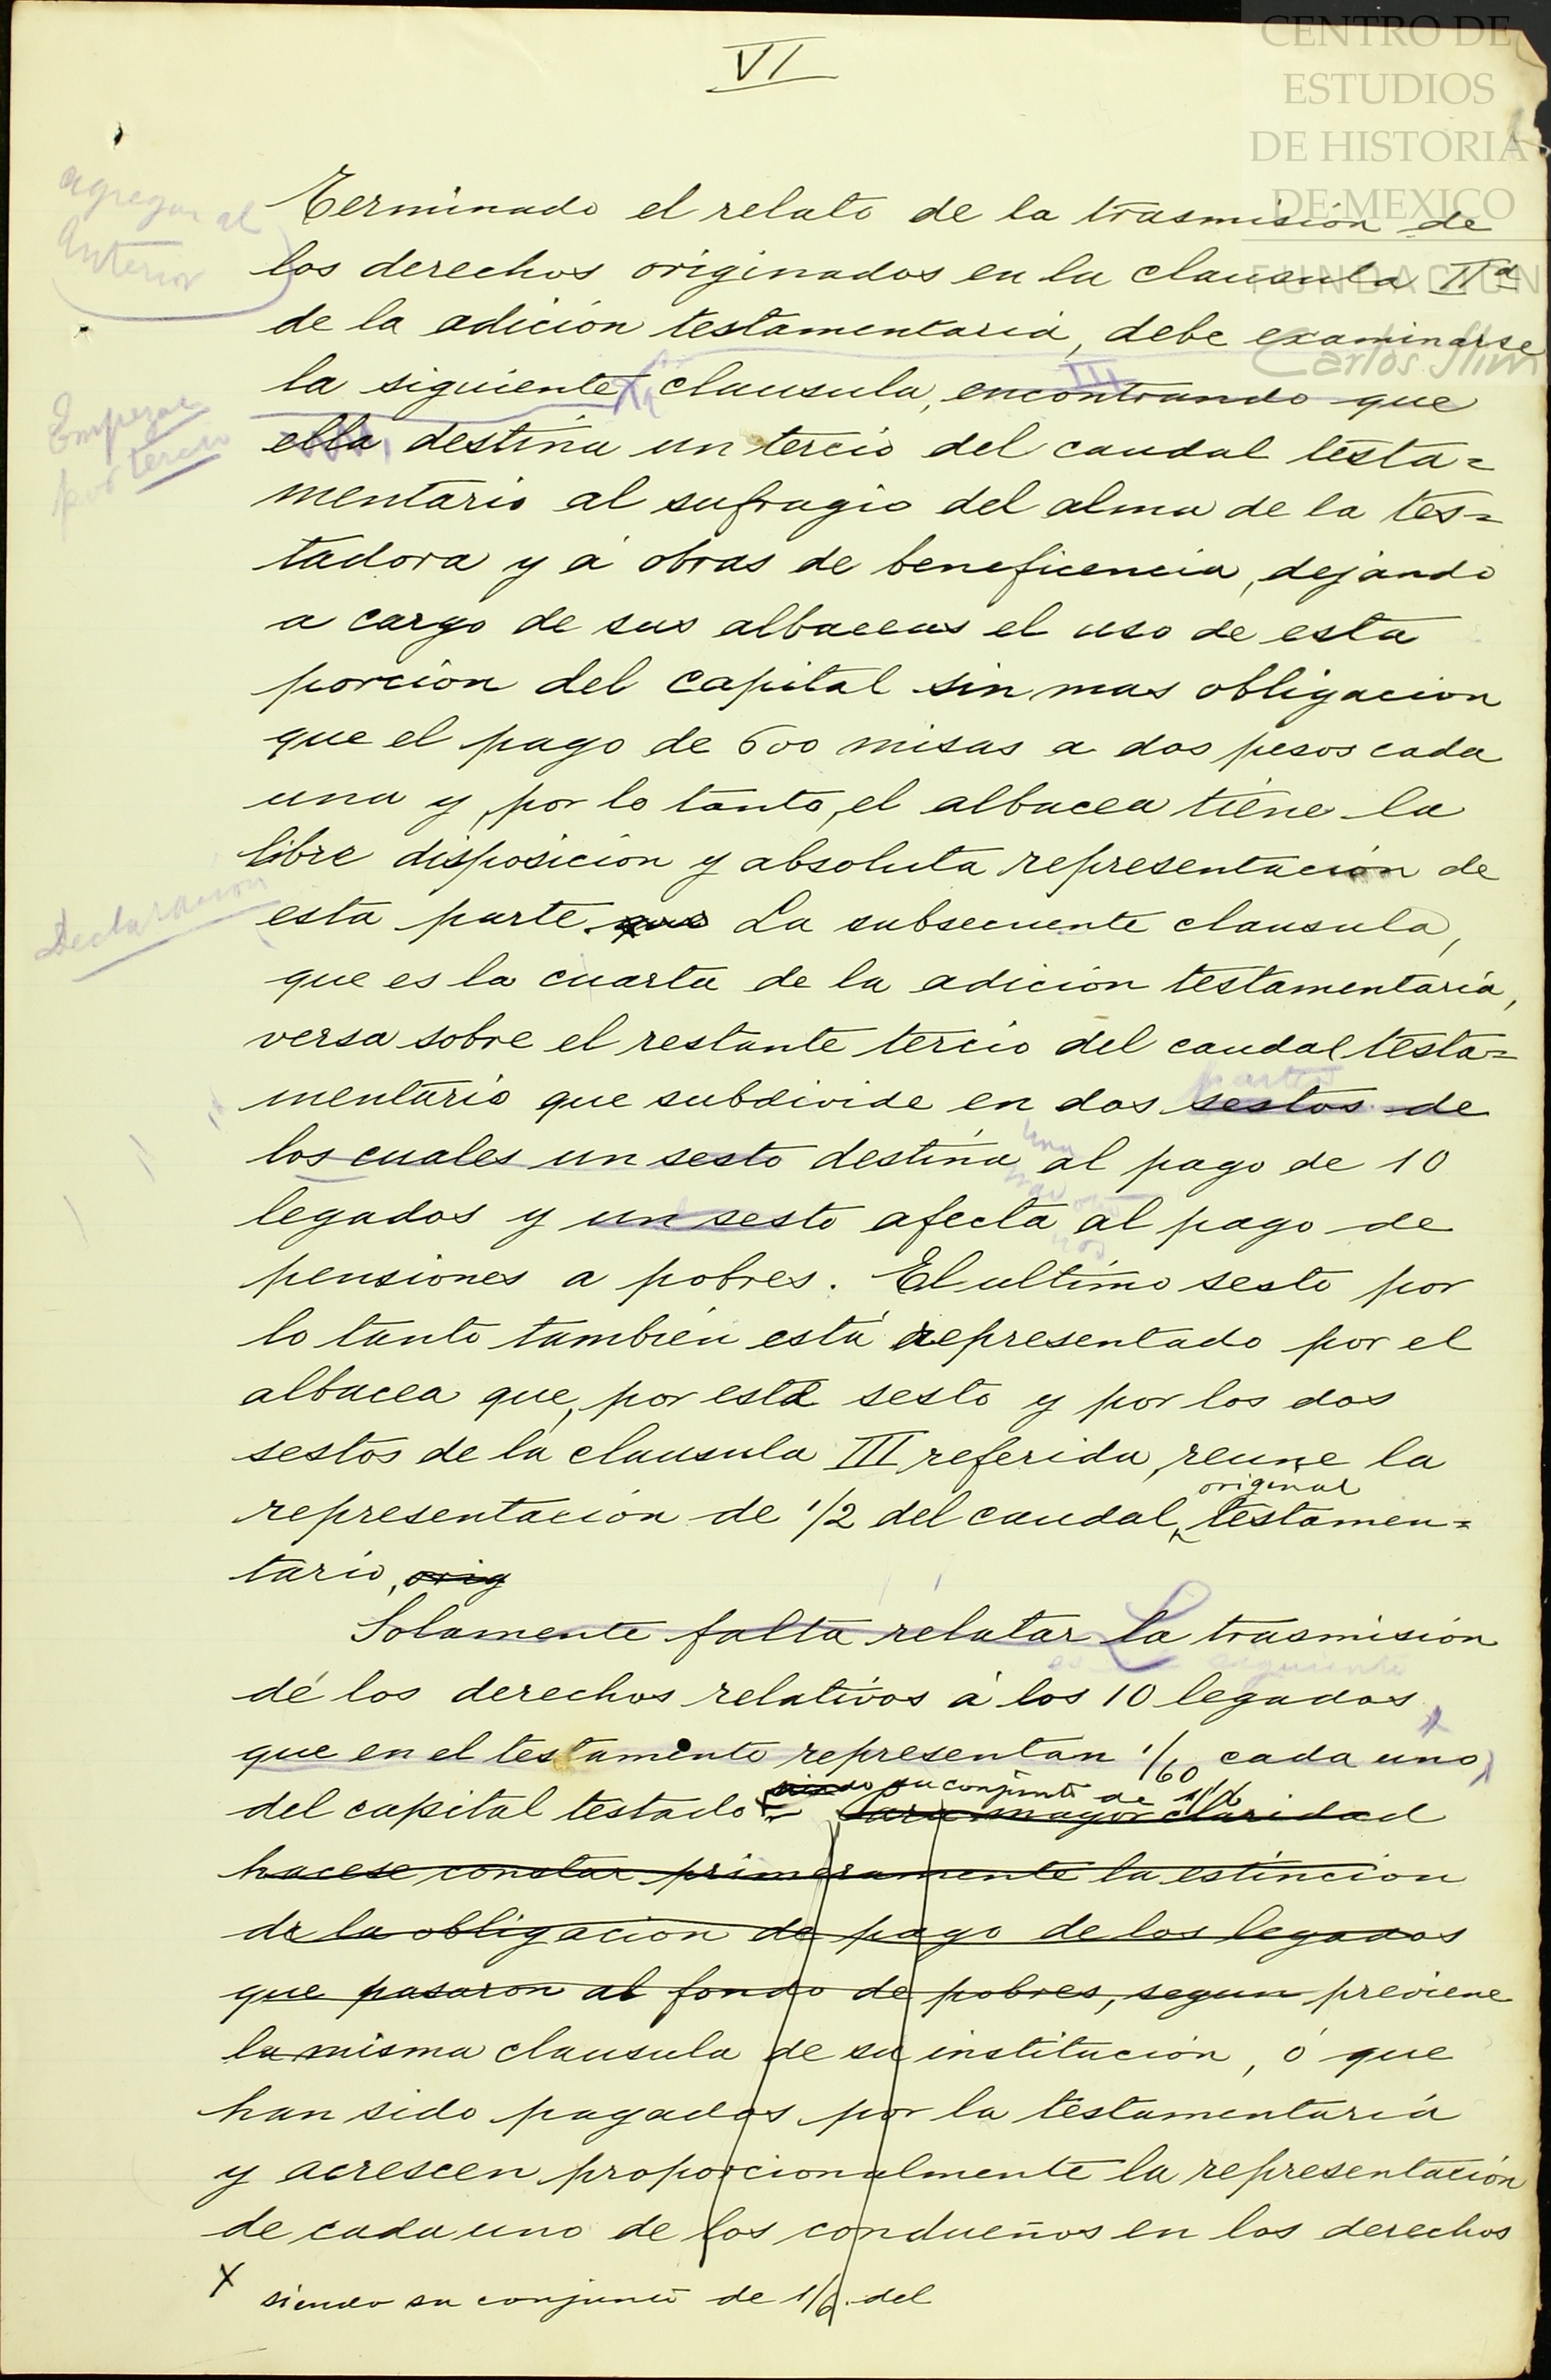 CENTRO DE
ESTUDIOS
DE HISTORIA
DE MEXICO
FUNDACIÓN
Carlos Slim
VI
agregar al
anterior
Terminado el relato de la trasmisión de
los derechos originados en la clausula IIa
de la adición testamentaria, debe examinarse
la siguiente clausula, encontrando que
III
Empezar
por tercio
ella destina un tercio del caudal testa=
mentario al sufragio del alma de la tes=
tadora y á obras de beneficencia, dejando
a cargo de sus albaceas el uso de esta
porción del capital sin mas obligacion
que el pago de 600 misas a dos pesos cada
una y, por lo tanto, el albacea tiene la
libre disposición y absoluta representación de
Declaracion
esta parte. que La subsecuente clausula,
que es la cuarta de la adición testamentaria,
versa sobre el restante tercio del caudal testa=
partes
mentario que subdivide en dos sestos de
los cuales un sesto destina al pago de 10
una
legados y un sesto afecta al pago de
pensiones a pobres. El ultimo sesto por
lo tanto también está representado por el
albacea que, por este sesto y por los dos
sestos de la clausula III referida, reune la
original
representación de 1/2 del caudal testamen=
tario, orig
Solamente falta relatar la trasmisión
es siguiente
de los derechos relativos á los 10 legados
que en el testamento representan 1/60 cada uno,
siendo su conjunto de 1/6
del capital testado Para mayor claridad
hacese constar primeramente la estinción
de la obligación de pago de los legados
que pasaron al fondo de pobres, segun previene
la misma clausula de su institución, ó que
han sido pagados por la testamentaria
y acrescen proporcionalmente la representación
de cada uno de los condueños en los derechos
X siendo su conjunto de 1/6 del